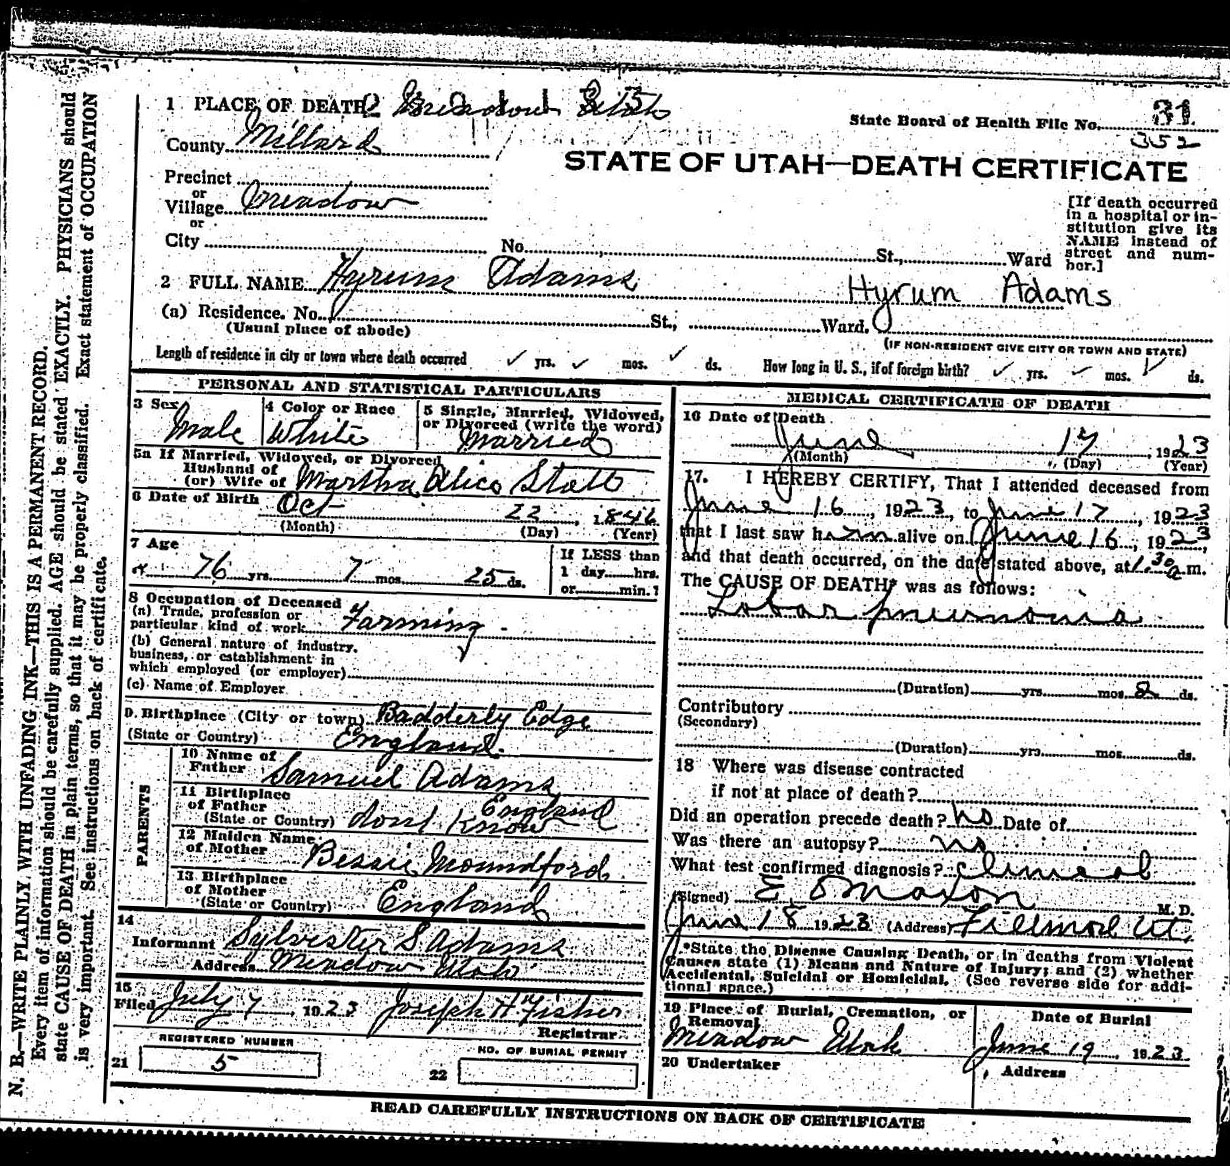 1 PLACE OF DEATH Meadow Utah
State Board of Health File No. 31
352
County Millard
STATE OF UTAH—DEATH CERTIFICATE
Precinct
or
Village Meadow
or
City No. St., Ward
[If death occurred
in a hospital or in-
stitution give its
NAME instead of
street and num-
ber.]
2 FULL NAME Hyrum Adams Hyrum Adams
(a) Residence. No. St., Ward.
(Usual place of abode) (IF NON-RESIDENT GIVE CITY OR TOWN AND STATE)
Length of residence in city or town where death occurred ✓ yrs. ✓ mos. ✓ ds. How long in U. S., if of foreign birth? ✓ yrs. ✓ mos. ✓ ds.
PERSONAL AND STATISTICAL PARTICULARS
3 Sex Male
4 Color or Race White
5 Single, Married, Widowed,
or Divorced (write the word)
Married
5a If Married, Widowed, or Divorced
Husband of
(or) Wife of Martha Alice Stott
6 Date of Birth Oct 22, 1846
(Month) (Day) (Year)
7 Age
76 yrs. 7 mos. 25 ds.
If LESS than
1 day hrs.
or min.?
8 Occupation of Deceased
(a) Trade, profession or
particular kind of work Farming
(b) General nature of industry,
business, or establishment in
which employed (or employer)
(c) Name of Employer
9. Birthplace (City or town) Badderly Edge
(State or Country) England.
PARENTS
10 Name of
Father Samuel Adams
11 Birthplace
of Father England
(State or Country) dont Know
12 Maiden Name
of Mother Bessie Moundford
13 Birthplace
of Mother
(State or Country) England
14
Informant Sylvester S Adams
Address Meadow Utah
15
Filed July 7, 1923 Joseph H Fisher
Registrar
REGISTERED NUMBER
21 5
NO. OF BURIAL PERMIT
22
MEDICAL CERTIFICATE OF DEATH
16 Date of Death
June 17, 1923
(Month) (Day) (Year)
17. I HEREBY CERTIFY, That I attended deceased from
June 16, 1923, to June 17, 1923
that I last saw him alive on June 16, 1923,
and that death occurred, on the date stated above, at 1:30 a.m.
The CAUSE OF DEATH* was as follows:
Lobar pneumonia
(Duration) yrs. mos. 2 ds.
Contributory
(Secondary)
(Duration) yrs. mos. ds.
18 Where was disease contracted
if not at place of death?
Did an operation precede death? No Date of
Was there an autopsy? no
What test confirmed diagnosis? clinical
(Signed) E. Maxon M. D.
June 18 1923 (Address) Fillmore Ut.
*State the Disease Causing Death, or in deaths from Violent
Causes state (1) Means and Nature of Injury; and (2) whether
Accidental, Suicidal or Homicidal. (See reverse side for addi-
tional space.)
19 Place of Burial, Cremation, or
Removal
Meadow Utah
Date of Burial
June 19, 1923
20 Undertaker
Address
READ CAREFULLY INSTRUCTIONS ON BACK OF CERTIFICATE
N. B.—WRITE PLAINLY WITH UNFADING INK—THIS IS A PERMANENT RECORD.
Every item of information should be carefully supplied. AGE should be stated EXACTLY. PHYSICIANS should
state CAUSE OF DEATH in plain terms, so that it may be properly classified. Exact statement of OCCUPATION
is very important. See instructions on back of certificate.